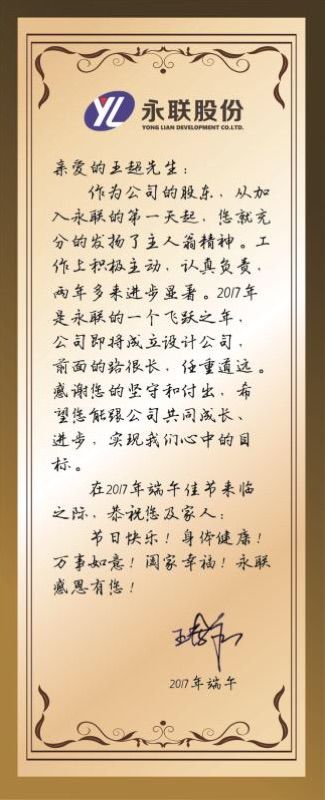 YL
永联股份
YONG LIAN DEVELOPMENT CO.LTD.
亲爱的王超先生：
作为公司的股东，从加
入永联的第一天起，您就充
分的发扬了主人翁精神。工
作上积极主动，认真负责，
两年多来进步显著。2017年
是永联的一个飞跃之年，
公司即将成立设计公司，
前面的路很长，任重道远。
感谢您的坚守和付出，希
望您能跟公司共同成长、
进步，实现我们心中的目
标。
在2017年端午佳节来临
之际，恭祝您及家人：
节日快乐！身体健康！
万事如意！阖家幸福！永联
感恩有您！
2017年端午